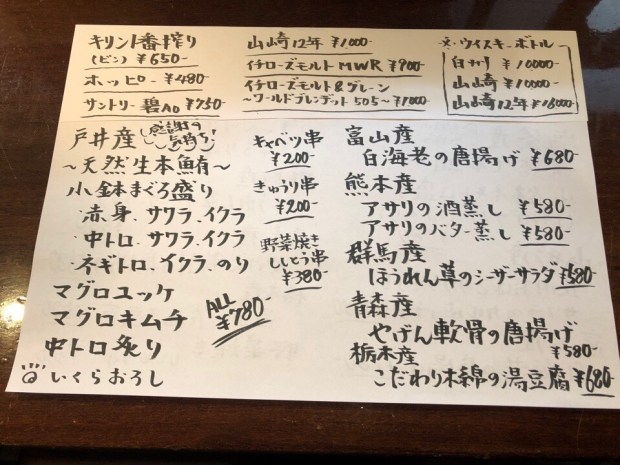 キリン一番搾り
(ビン) ¥650-
ホッピー ¥480-
サントリー碧Ao ¥750-
山崎12年 ¥1,000-
イチローズモルト MWR ¥900-
イチローズモルト&グレーン
〜ワールドブレンデット505〜 ¥1000-
ウイスキーボトル
白カク ¥10000-
山崎 ¥10000-
山崎12年 ¥18000-
戸井産
感謝の
気持ち!
〜天然生本鮪〜
小鉢まぐろ盛り
・赤身、サワラ、イクラ
・中トロ、サワラ、イクラ
・ネギトロ、イクラ、のり
マグロユッケ
マグロキムチ
中トロ炙り
いくらおろし
ALL
¥780-
キャベツ串
¥200-
きゅうり串
¥200-
野菜焼き
ししとう串
¥380-
富山産
白海老の唐揚げ ¥680-
熊本産
アサリの酒蒸し ¥580-
アサリのバター蒸し ¥580-
群馬産
ほうれん草のシーザーサラダ ¥580-
青森産
やげん軟骨の唐揚げ
¥580-
栃木産
こだわり木綿の湯豆腐 ¥680-